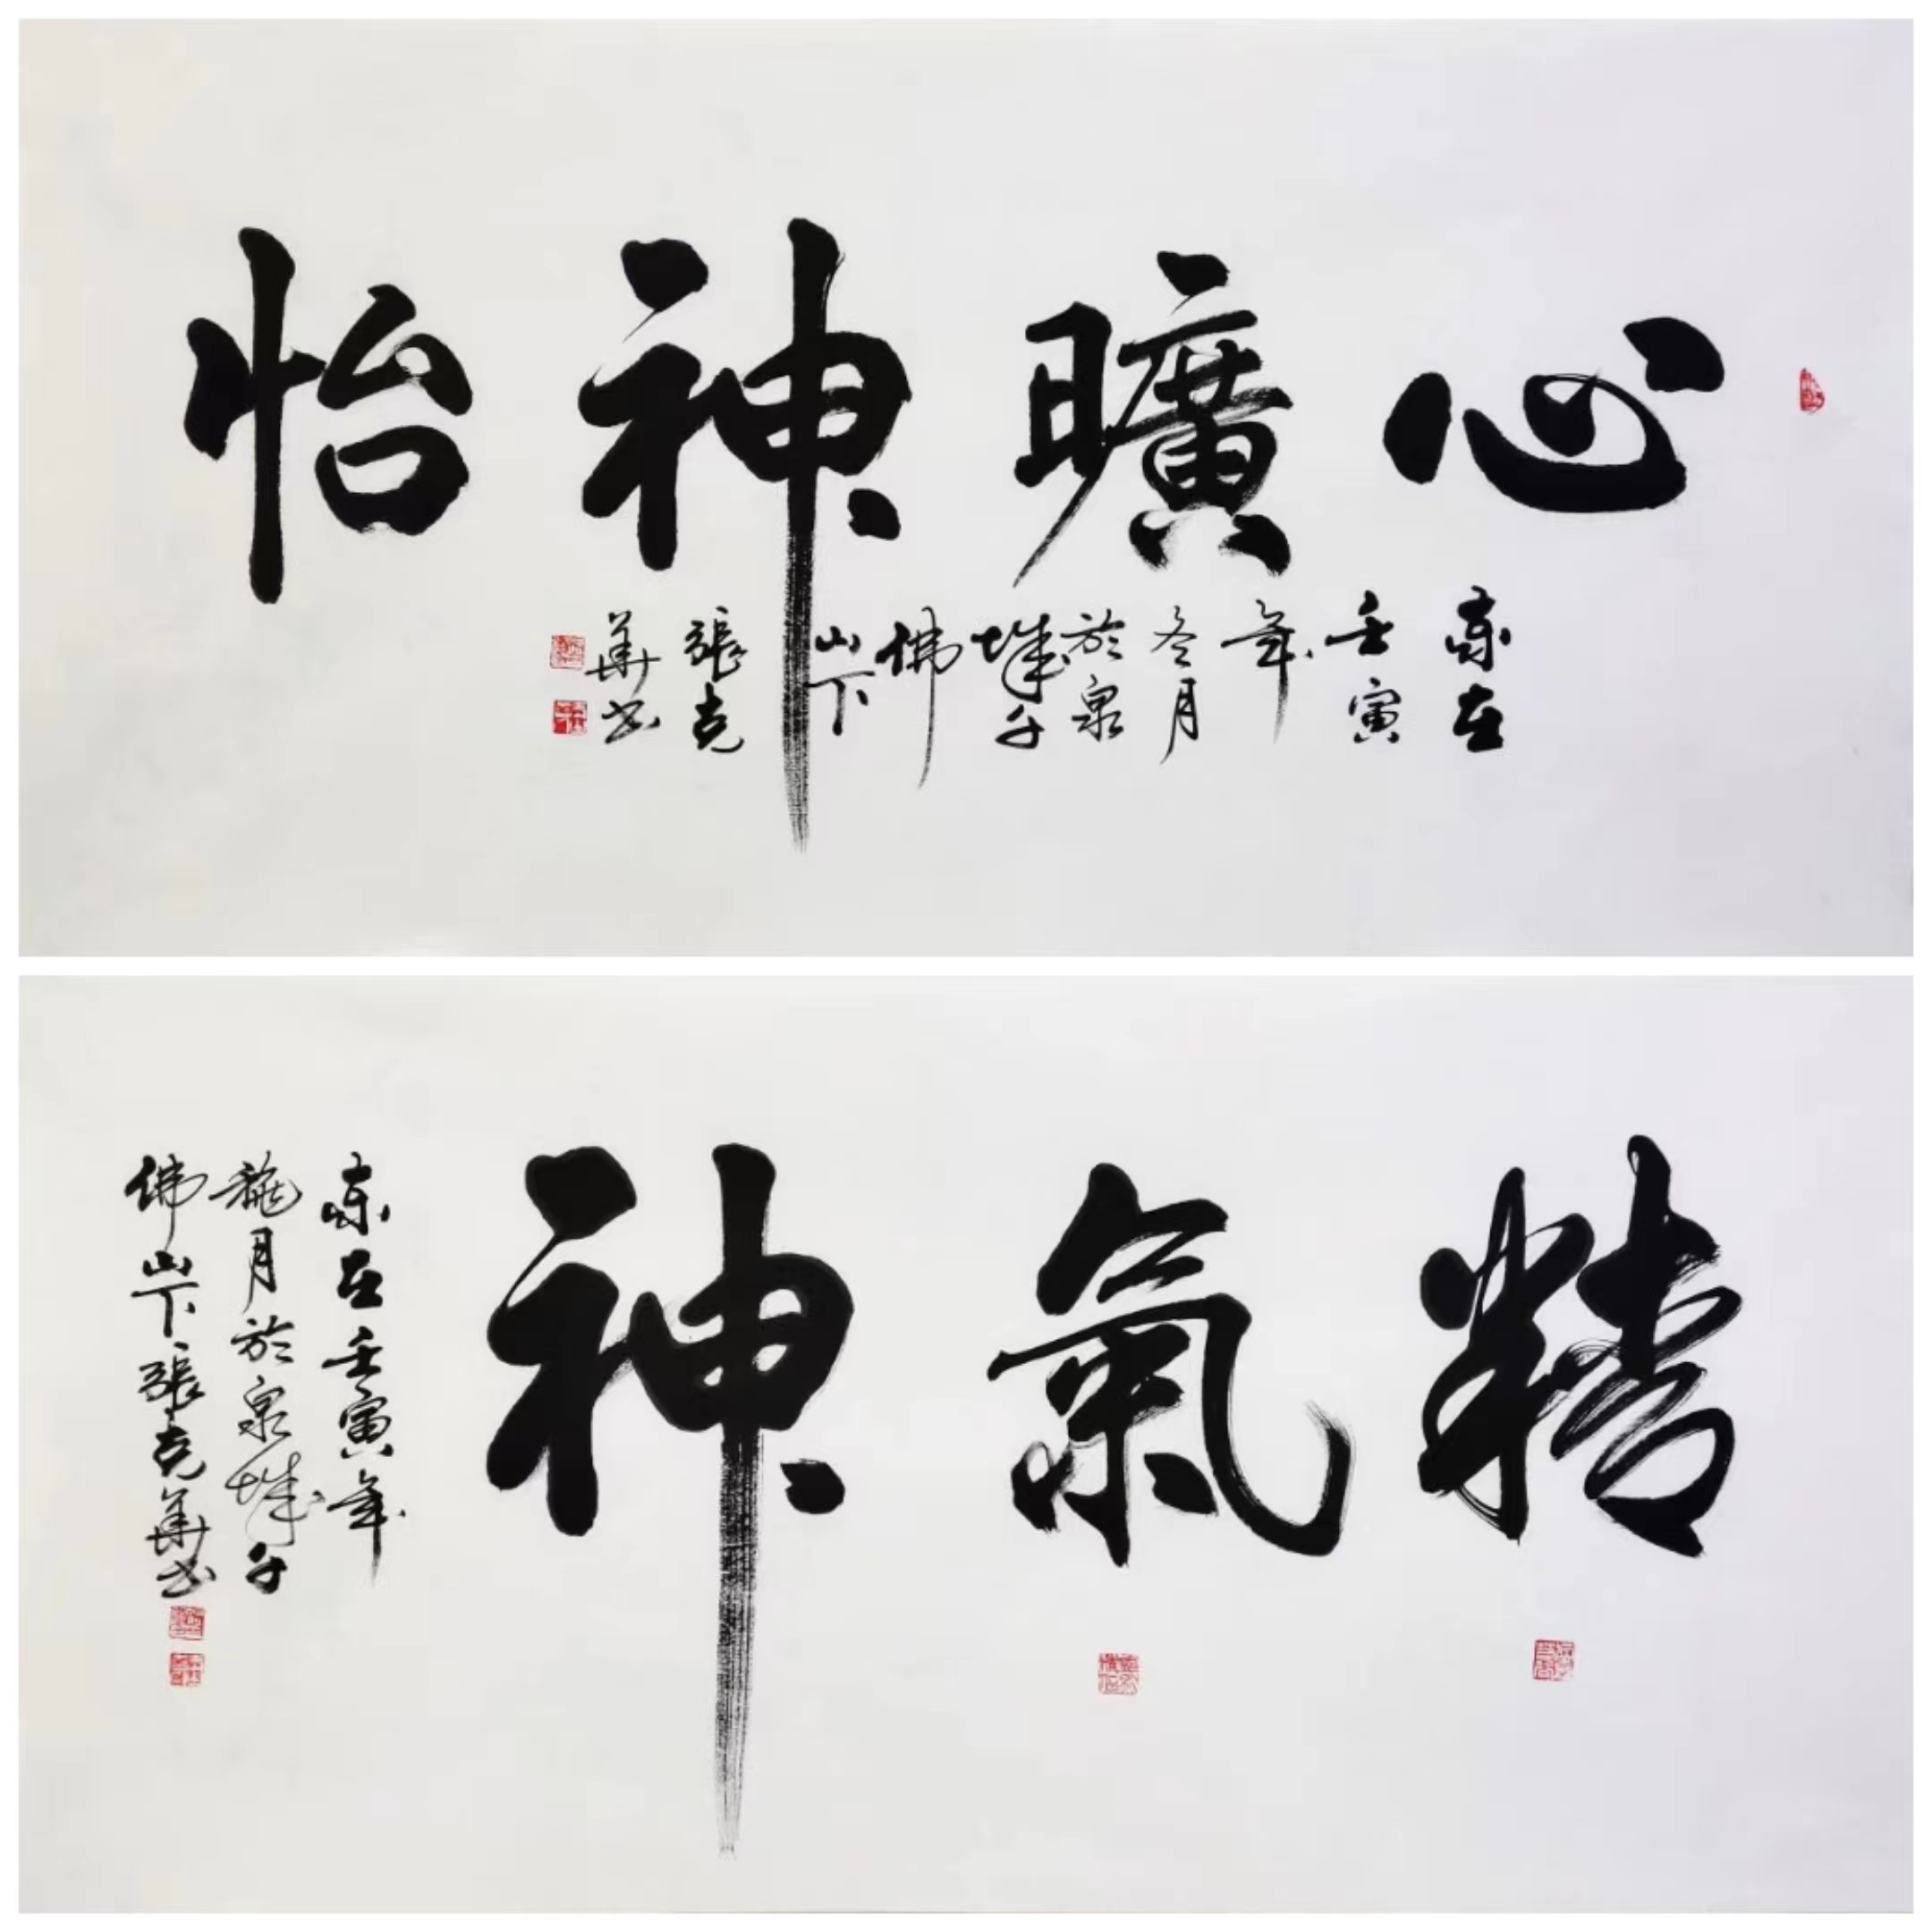 心曠神怡
歲在
壬寅
年
冬月
於泉
城千
佛
山下
張克
華書
精氣神
歲在壬寅年
龍月於泉城千
佛山下張克華書